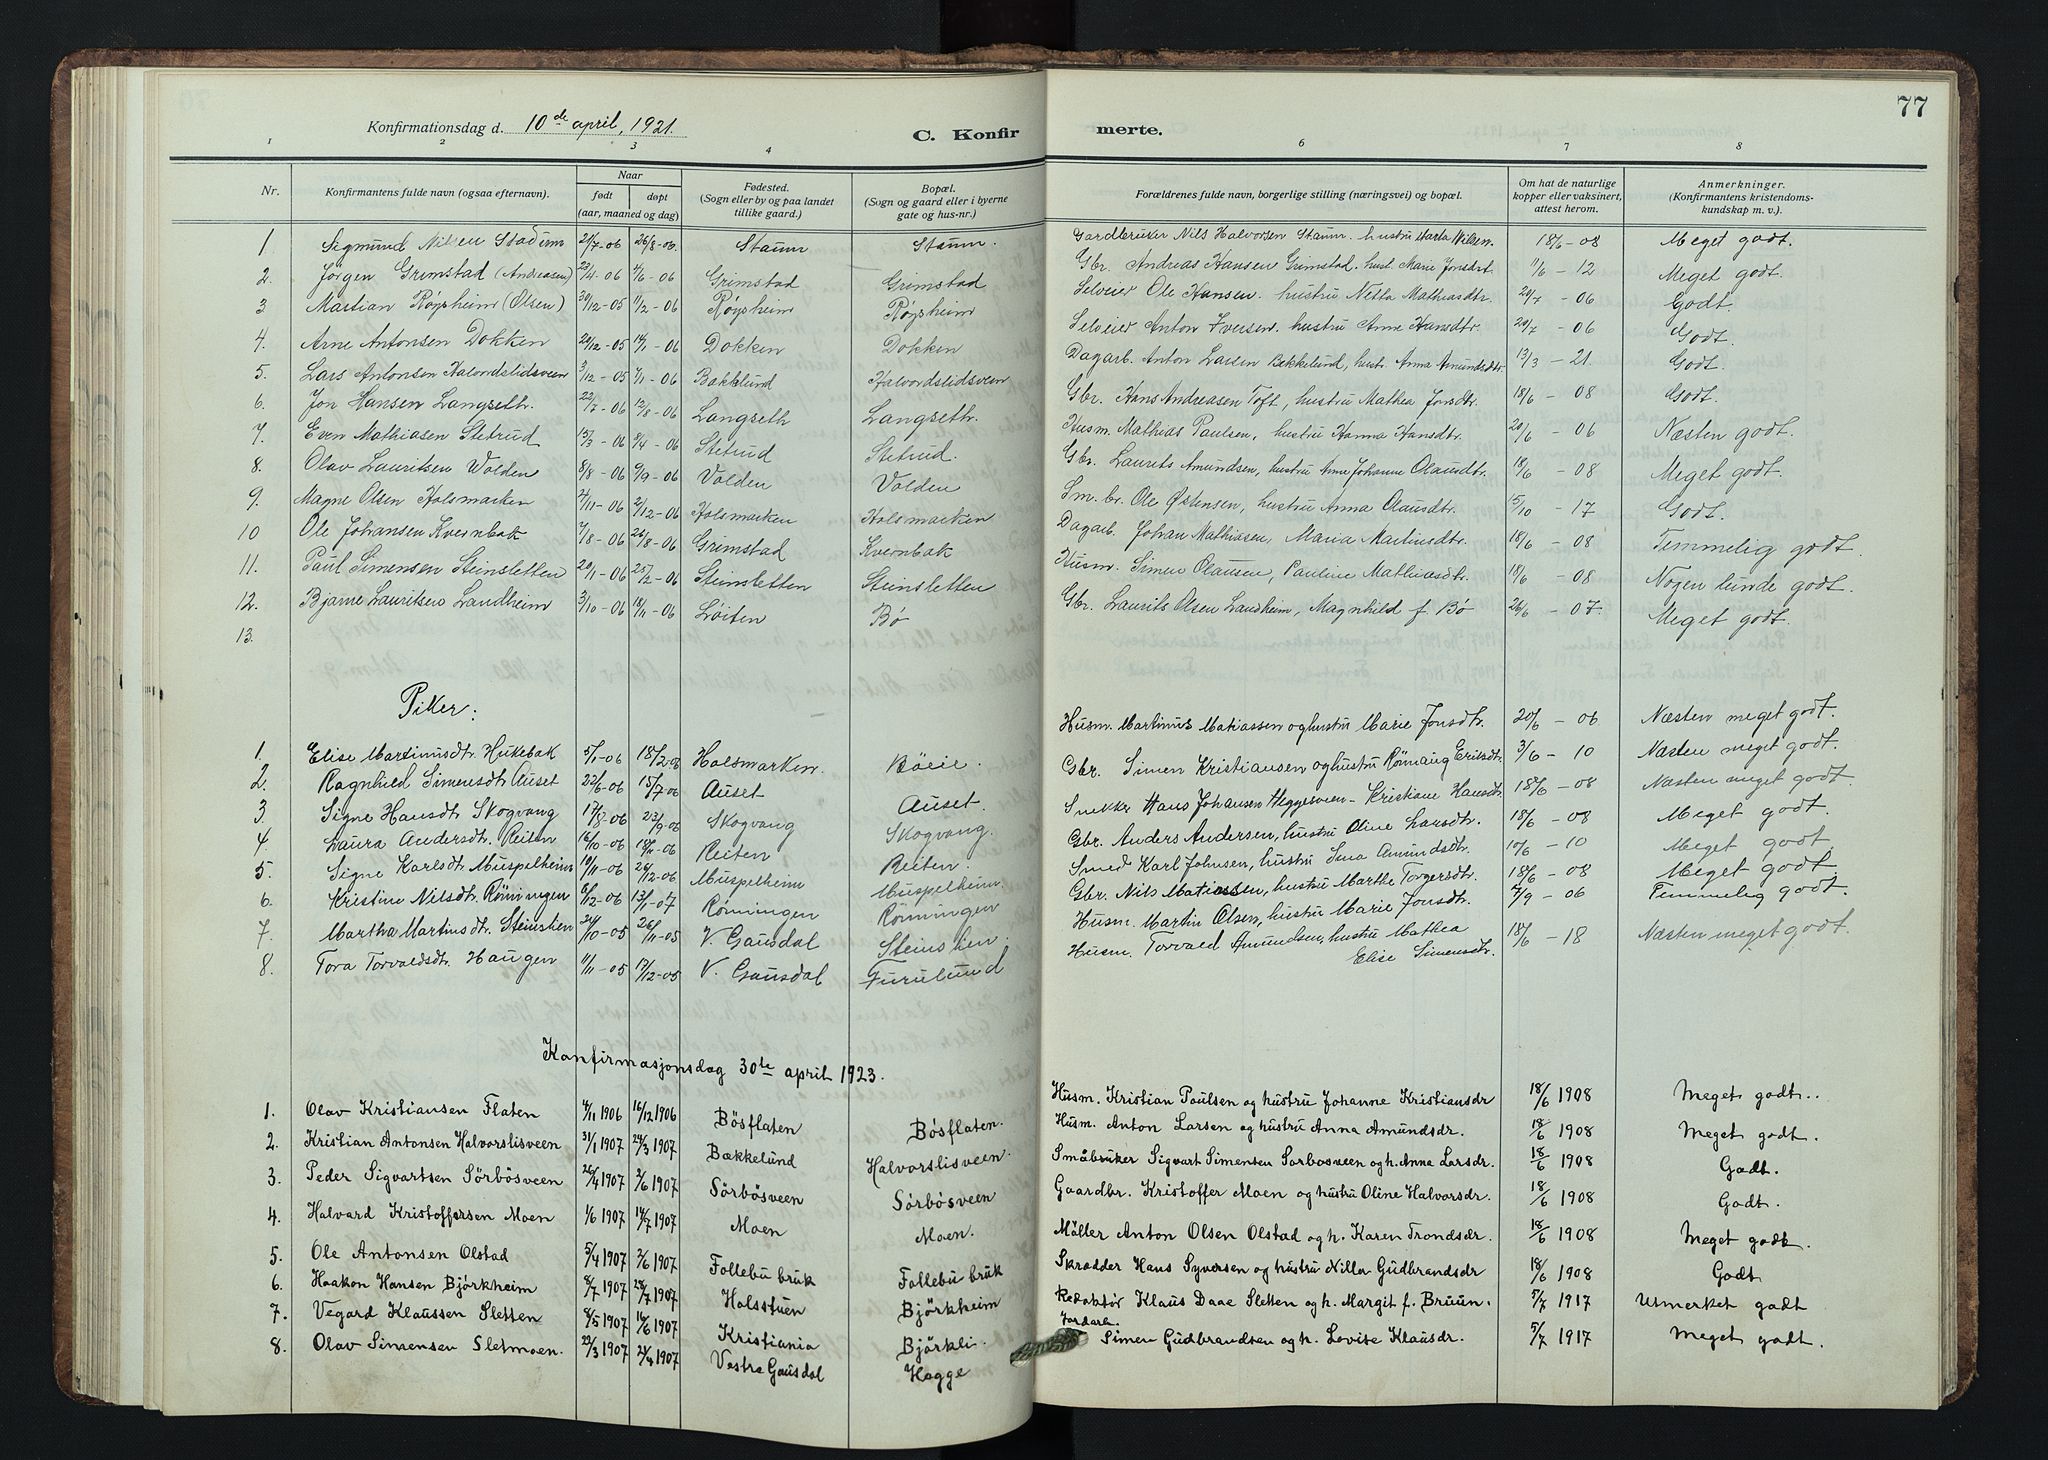 77
Konfirmationsdag d. 10de april, 1921.
C. Konfirmerte.
1 2 3 4 6 7 8
Nr. Konfirmantens fulde navn (ogsaa efternavn). Naar født døpt (aar, maaned og dag) Fødested. (Sogn eller by og paa landet tillike gaard.) Bopæl. (Sogn og gaard eller i byerne gate og hus-nr.) Forældrenes fulde navn, borgerlige stilling (næringsvei) og bopæl. Om hat de naturlige kopper eller vaksinert, attest herom. Anmerkninger. (Konfirmantens kristendomskundskap m. v.)
1 Sigmund Nilsen Staum 21/7-06 26/8-06 Staum Staum. Gardbruker Nils Halvorsen Staum. hustru Marta Nilsen. 18/6-08 Meget godt.
2. Jørgen Grimstad (Andreasen) 23/4-06 4/6-06 Grimstad Grimstad Gbr. Andreas Hansen Grimstad. hust. Marie Jonsdt 11/6-12 Meget godt.
3 Mastian Røysheim (Olsen) 30/12-05 11/2-06 Røysheim Røysheim Selveier Ole Hansen. hustru Netta Mathiasdtr. 20/7-06 Godt.
4. Arne Antonsen Dokken 20/12-05 14/1-06 Dokken Dokken Selveier Anton Iversen. hustru Anne Hansdtr. 20/7-06 Godt.
5. Lars Antonsen Halvordslidsveen 3/12-05 7/1-06 Bakklund Halvordslidsveen Dagarb. Anton Larsen Bekkelund, hustr. Anna Amundsdtr. 13/3-21 Godt.
6. Jon Hansen Langseth. 22/7-06 12/8-06 Langseth Langseth. Gbr. Hans Andreasen Toft, hustru Mathea Jonsdtr. 18/6-08 Godt.
7. Even Mathiasen Stetrud 13/3-06 8/4-06 Stetrud Stetrud. Husm. Mathias Paulsen, hustru Hanna Hansdtr. 20/6-06 Næsten godt.
8. Olav Lauritsen Volden 8/8-06 9/9-06 Volden Volden Gbr. Laurits Amundsen, hustru Anne Johanne Olausdtr. 18/6-08 Meget godt.
9. Magne Olsen Holsmarken 4/11-06 2/12-06 Holsmarken Holsmarken Sm. br. Ole Østensen, hustru Anna Olausdtr. 15/10-17 Godt.
10 Ole Johansen Kvernbak 7/8-06 26/8-06 Grimstad Kvernbak Dagarb. Johan Mathiasen, Maria Martinsdtr. 18/6-08 Temmelig godt.
11. Paul Simensen Steinsletten 20/1-06 25/2-06 Steinsletten Steinsletten Husm. Simen Olausen, Pauline Mathiasdtr. 18/6-08 Nogen lunde godt.
12. Bjarne Lauritsen Landheim 3/10-06 18/11-06 Løiten Bø Gbr. Laurits Olsen Landheim, Magnhild f. Bø 26/6-07. Meget godt.
13.
Piker:
1. Elise Martinusdtr. Hukebak 5/1-06 18/2-06 Holsmarken. Böeie. Husm. Martinus Matiassen og hustru Marie Jonsdtr. 20/6-06 Næsten meget godt.
2. Ragnhild Simensdtr Auset 22/6-06 15/7-06 Auset Auset. Gbr. Simen Kristiansen og hustru Rönnaug Eriksdtr 3/6-10 Næsten meget godt.
3. Signe Hansdt. Skogvang 17/8-06 23/9-06 Skogvang Skogvang. Snekker Hans Johansen Heggesveen - Kristiane Hansdtr 18/6-08 Næsten meget godt.
4. Laura Andersdtr. Reiten 16/10-06 18/11-06 Reiten Reiten. Gbr. Anders Andersen, hustru Oline Larsdtr. 18/6-08 Meget godt.
5. Signe Karlsdtr. Muspelheim 19/11-06 26/12-06 Muspelheim Muspelheim. Smed Karl Johnsen, hustru Ima Amundsdtr. 10/6-10 Meget godt.
6. Kristine Nilsdtr. Rönningen 6/12-06 13/1-07 Rönningen Rönningen Gbr. Nils Matiassen, hustru Marthe Torgersdtr. 18/6-08 Meget godt.
7. Martha Martinsdtr. Steinslien 24/10-05 26/11-05 V. Gausdal Steinslien. Husm. Martin Olsen, hustru Marie Jonsdtr. 4/9-06 Temmelig godt.
8. Tora Torvaldsdtr. Haugen 11/11-05 17/12-05 V. Gausdal Furulund Husm. Torvald Amundsen, hustru Mathea Elise Simensdtr. 18/6-18 Næsten meget godt.
Konfirmasjonsdag 30te april 1923.
1. Olav Kristiansen Flaten 4/11 1906 16/12 1906 Bösflaten Bösflaten. Husm. Kristian Paulsen og hustru Johanne Kristiansdr 18/6 1908 Meget godt.
2. Kristian Antonsen Halvorslisveen 31/1 1907 24/3 1907 Bækkelund Halvorslisveen. Husm. Anton Larsen og hustru Anna Amundsdr. 18/6 1908 Meget godt.
3. Peder Sigvartsen Sörbösveen 26/4 1907 2/6 1907 Sörbösveen Sörbösveen Småbruker Sigvart Simensen Sorbosveen og h. Anne Larsdr. 18/6 1908 Godt.
4. Halvard Kristoffersen Moen 1/6 1907 14/7 1907 Moen Moen. Gaardbr. Kristoffer Moen og hustru Oline Halvorsdr. 18/6 1908 Godt.
5. Ole Antonsen Olstad 5/4 1907 2/6 1907 Follebu bruk Follebu bruk Möller Anton Olsen Olstad og h. Karen Trondsdr. 18/6 1908 Meget godt.
6. Haakon Hansen Björkheim 8/7 1907 28/7 1907 Holsstuen Björkheim Skrædder Hans Syversen og hustru Nilla Gudbrandsdr 18/6 1908 Godt
7. Vegard Klaussen Sletten 8/5 1907 16/6 1907 Kristiania Björkli. Redaktør Klaus Daae Sletten og h. Margit f. Bruun. 5/7 1917 Utmerket godt
8. Olav Simensen Sletmoen. 22/3 1907 21/4 1907 Vestre Gausdal Hagge Jordarb. Simen Gudbrandsen og h. Lovise Klausdr. 5/7 1917 Meget godt.